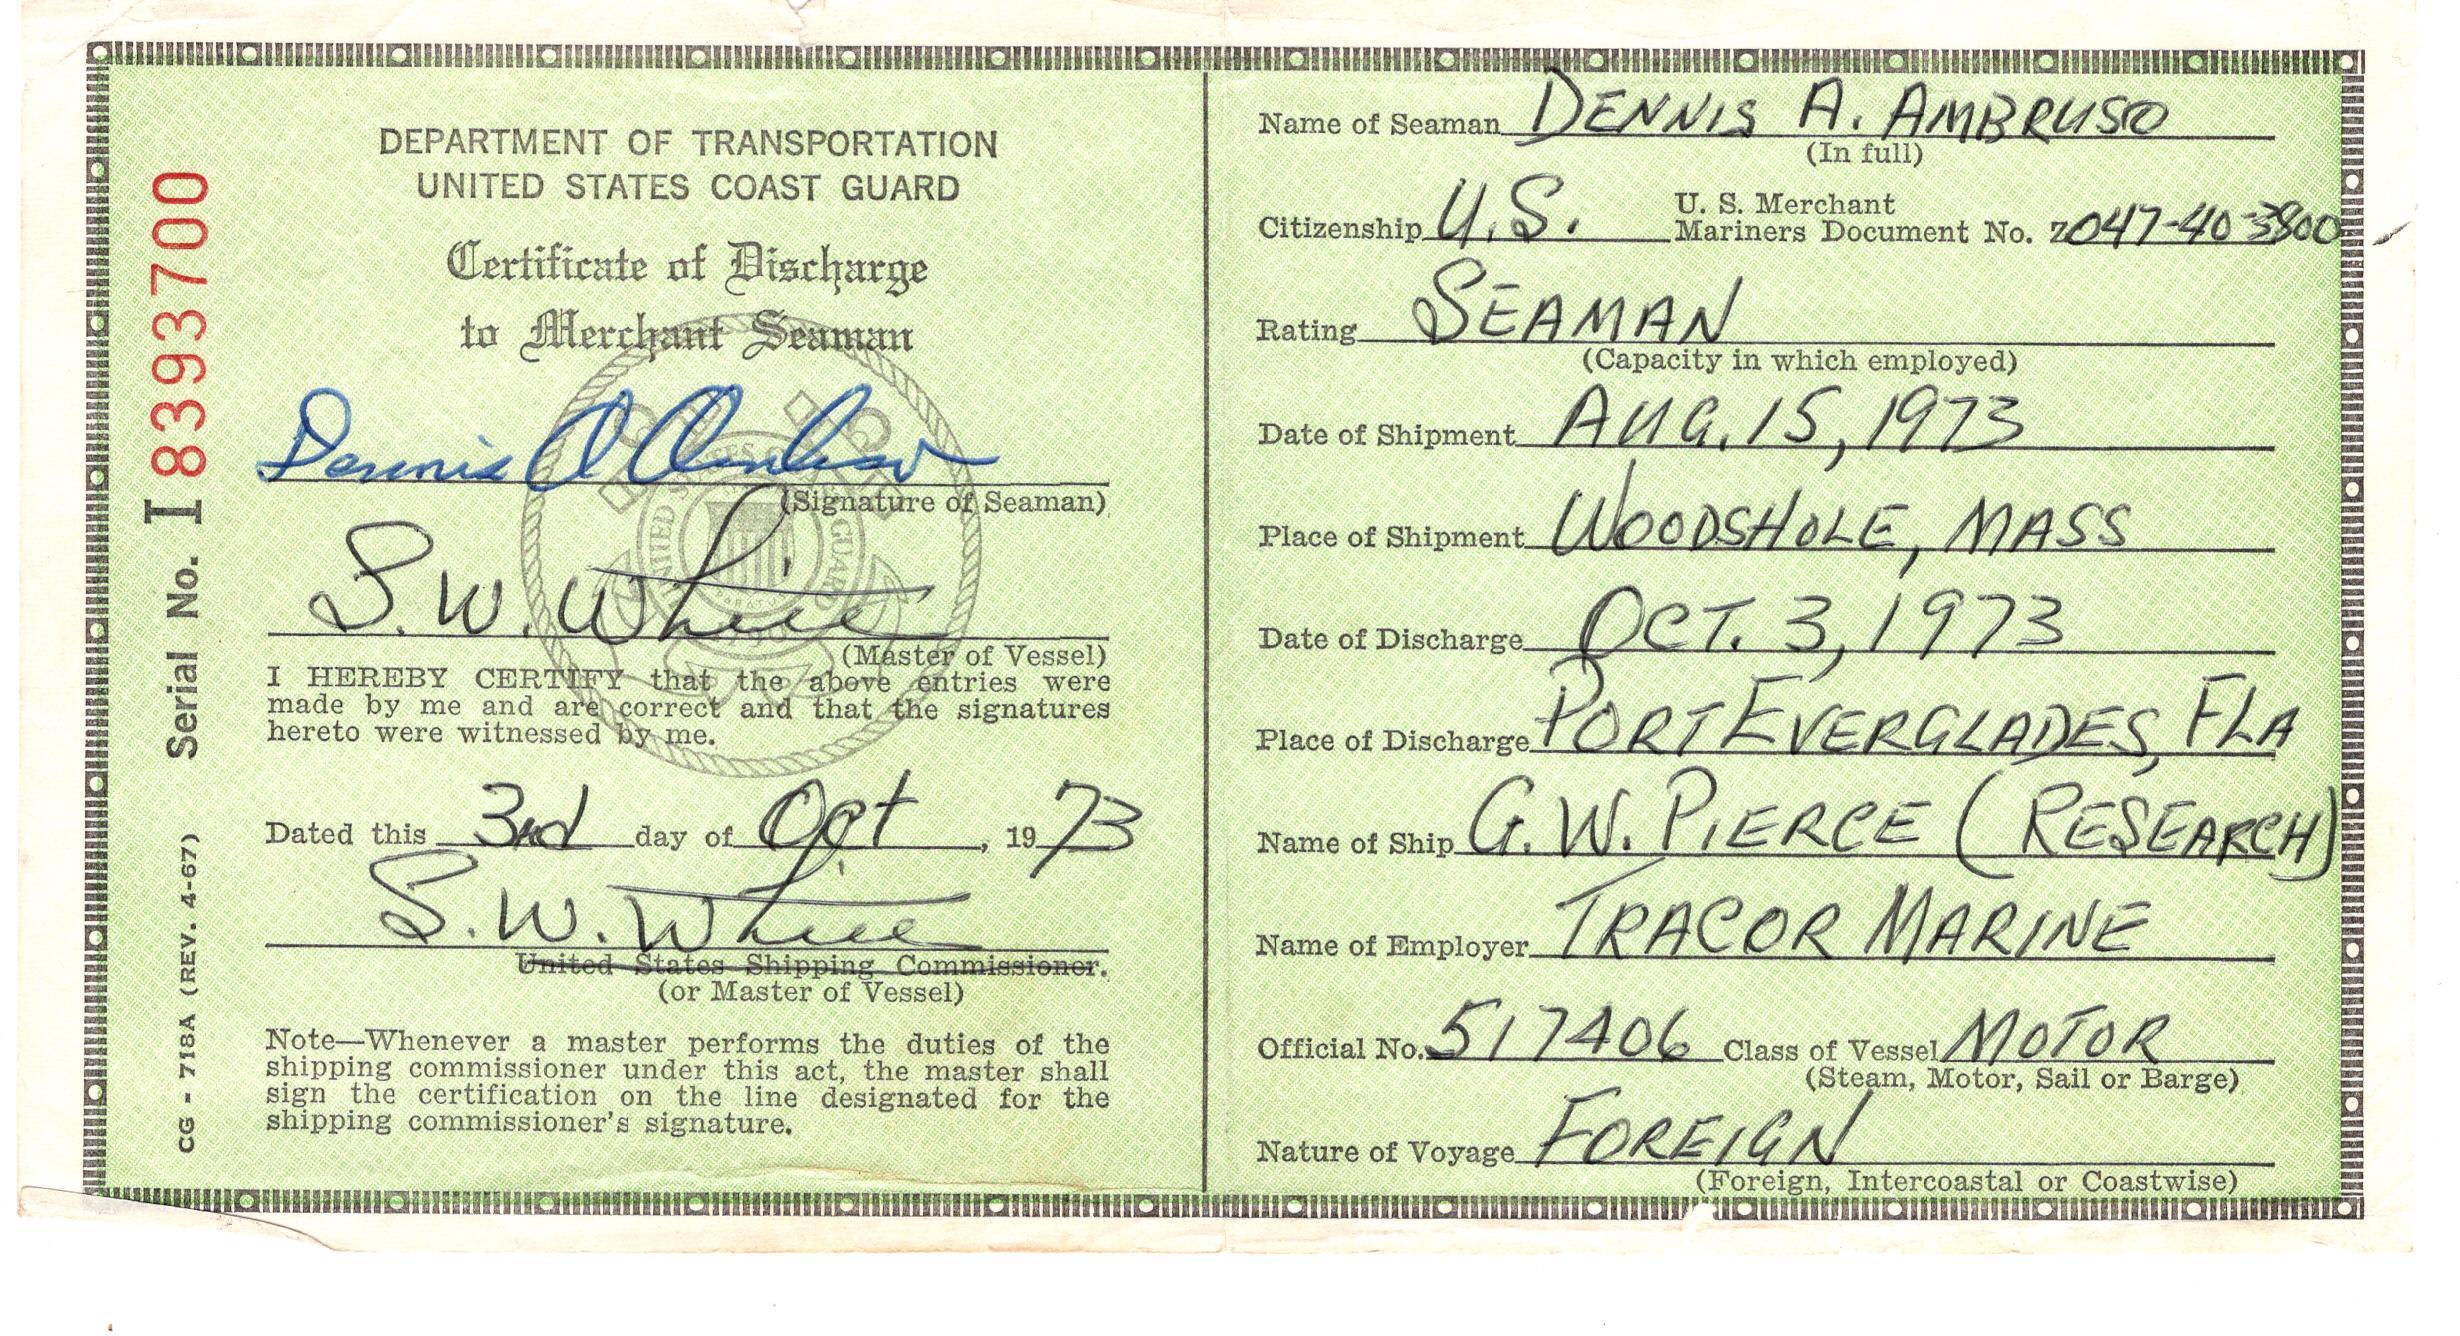 DEPARTMENT OF TRANSPORTATION
UNITED STATES COAST GUARD
Certificate of Discharge
to Merchant Seaman
Dennis A Ambruso
(Signature of Seaman)
S. W. White
(Master of Vessel)
I HEREBY CERTIFY that the above entries were
made by me and are correct and that the signatures
hereto were witnessed by me.
Dated this 3rd day of Oct, 1973
S. W. White
United States Shipping Commissioner.
(or Master of Vessel)
Note—Whenever a master performs the duties of the
shipping commissioner under this act, the master shall
sign the certification on the line designated for the
shipping commissioner's signature.
Serial No. I 8393700
CG - 718A (REV. 4-67)
UNITED STATES COAST GUARD
Name of Seaman DENNIS A. AMBRUSO
(In full)
Citizenship U.S. U. S. Merchant
Mariners Document No. Z047-40-3800
Rating SEAMAN
(Capacity in which employed)
Date of Shipment AUG. 15, 1973
Place of Shipment WOODSHOLE, MASS
Date of Discharge OCT. 3, 1973
Place of Discharge PORT EVERGLADES, FLA
Name of Ship G. W. PIERCE (RESEARCH)
Name of Employer TRACOR MARINE
Official No. 517406 Class of Vessel MOTOR
(Steam, Motor, Sail or Barge)
Nature of Voyage FOREIGN
(Foreign, Intercoastal or Coastwise)